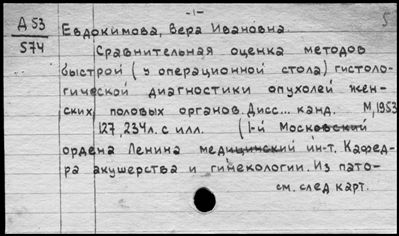 -1-
5
Д 53
574
Евдокимова, Вера Ивановна.
Сравнительная оценка методов
быстрой (у операционной стола) гистоло-
гической диагностики опухолей жен-
ских половых органов. Дисс... канд. М, 1953
127, 234л. с илл. (1-й Московский
ордена Ленина медицинский ин-т. Кафед-
ра акушерства и гинекологии. Из пато-
см. след карт.